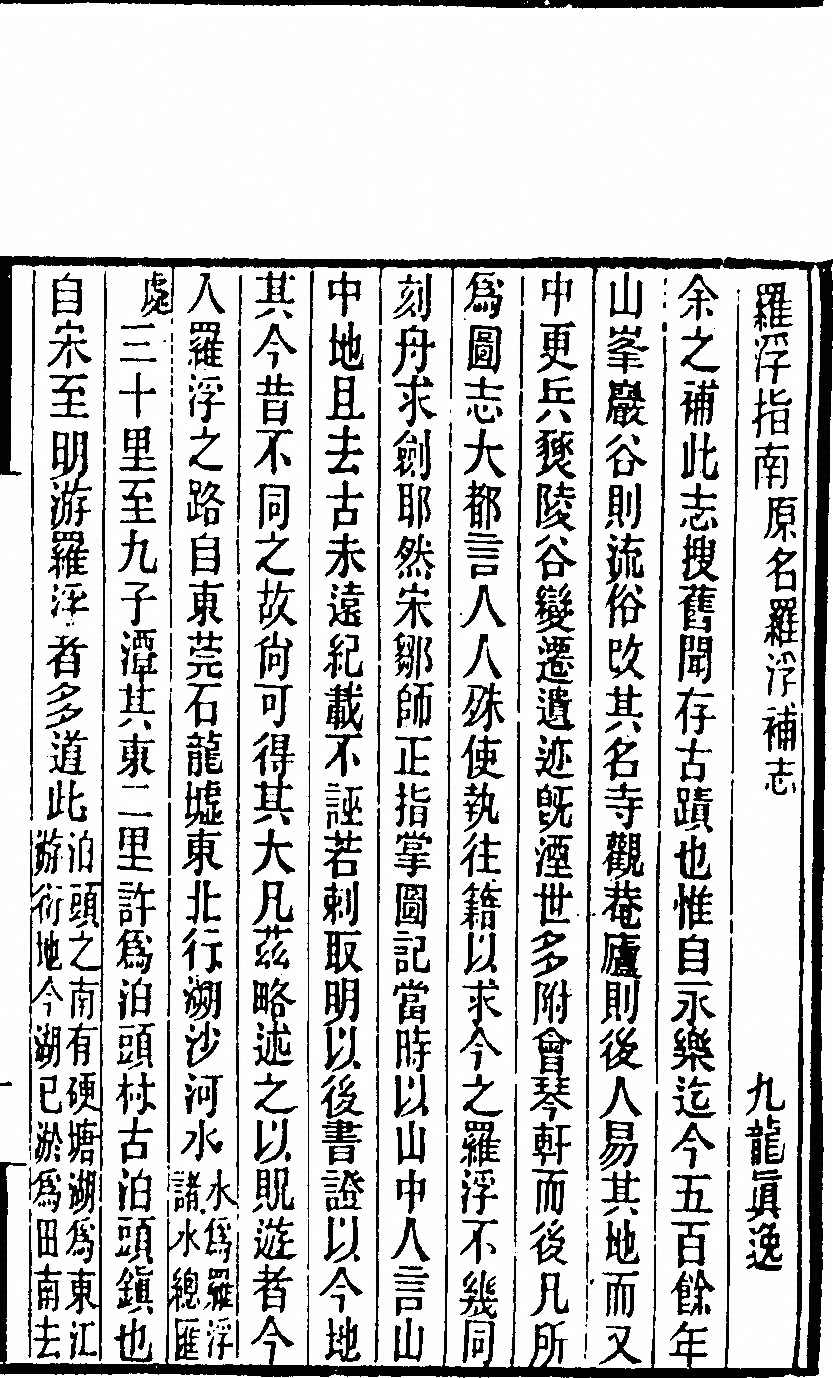 羅浮指南原名羅浮補志 九龍眞逸
余之補此志搜舊聞存古蹟也惟自永樂迄今五百餘年
山峯巖谷則流俗改其名寺觀菴廬則後人易其地而又
中更兵燹陵谷變遷遺迹旣湮世多附會琴軒而後凡所
爲圖志大都言人人殊使執往籍以求今之羅浮不幾同
刻舟求劍耶然宋鄒師正指掌圖記當時以山中人言山
中地且去古未遠紀載不誣若剌取明以後書證以今地
其今昔不同之故尙可得其大凡茲略述之以貺遊者今
入羅浮之路自東莞石龍墟東北行溯沙河水水爲羅浮諸水總匯
處三十里至九子潭其東二里許爲泊頭村古泊頭鎭也
自宋至明游羅浮者多道此泊頭之南有硬塘湖爲東江游衍地今湖已淤爲田南去